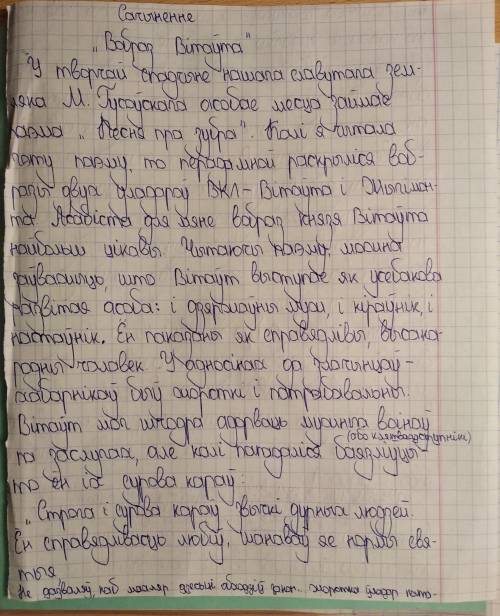 Сачыненне
"Вобраз Вітаўта"
У творчай спадчыне нашага славутага зем-
ляка М. Гусоўскага асобае месца займае
паэма "Песня пра зубра". Калі я читала
гэту паэму, то перада мной раскрыліся воб-
разы двух уладароў ВКЛ - Вітаўта і Жыгімон-
та. Асабіста для мяне вобраз князя Вітаўта
найбольш цікавы. Чытаючы паэму, можна
заўважыць, што Вітаўт выступае як усебакова
развітая асоба: і дзяржаўны муж, і кіраўнік, і
настаўнік. Ён паказаны як справядлівы, высака-
родны чалавек. У адносінах да злачынцаў-
хабарнікаў быў жорсткі і патрабавальны.
Вітаўт мог шчодра адорваць мужных воінаў
(або клятваадступнікі)
па заслугах, але калі пападаліся баязлiўцы
то ён іх сурова караў:
"Строга і сурова караў звычкі дурных людзей.
Ён справядлівасць любіў, шанаваў яе нормы свя-
тыя,
Не дазваляў, каб масляр